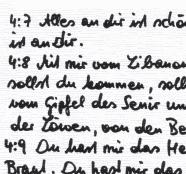 4:7 Alles an dir ist schö
ist an dir.
4:8 mir vom Libanon
sollst du kommen, soll
vom Gipfel des Senir un
der Löwen, von den Be
4:9 Du hast mir das He
Braut. Du hast mir das